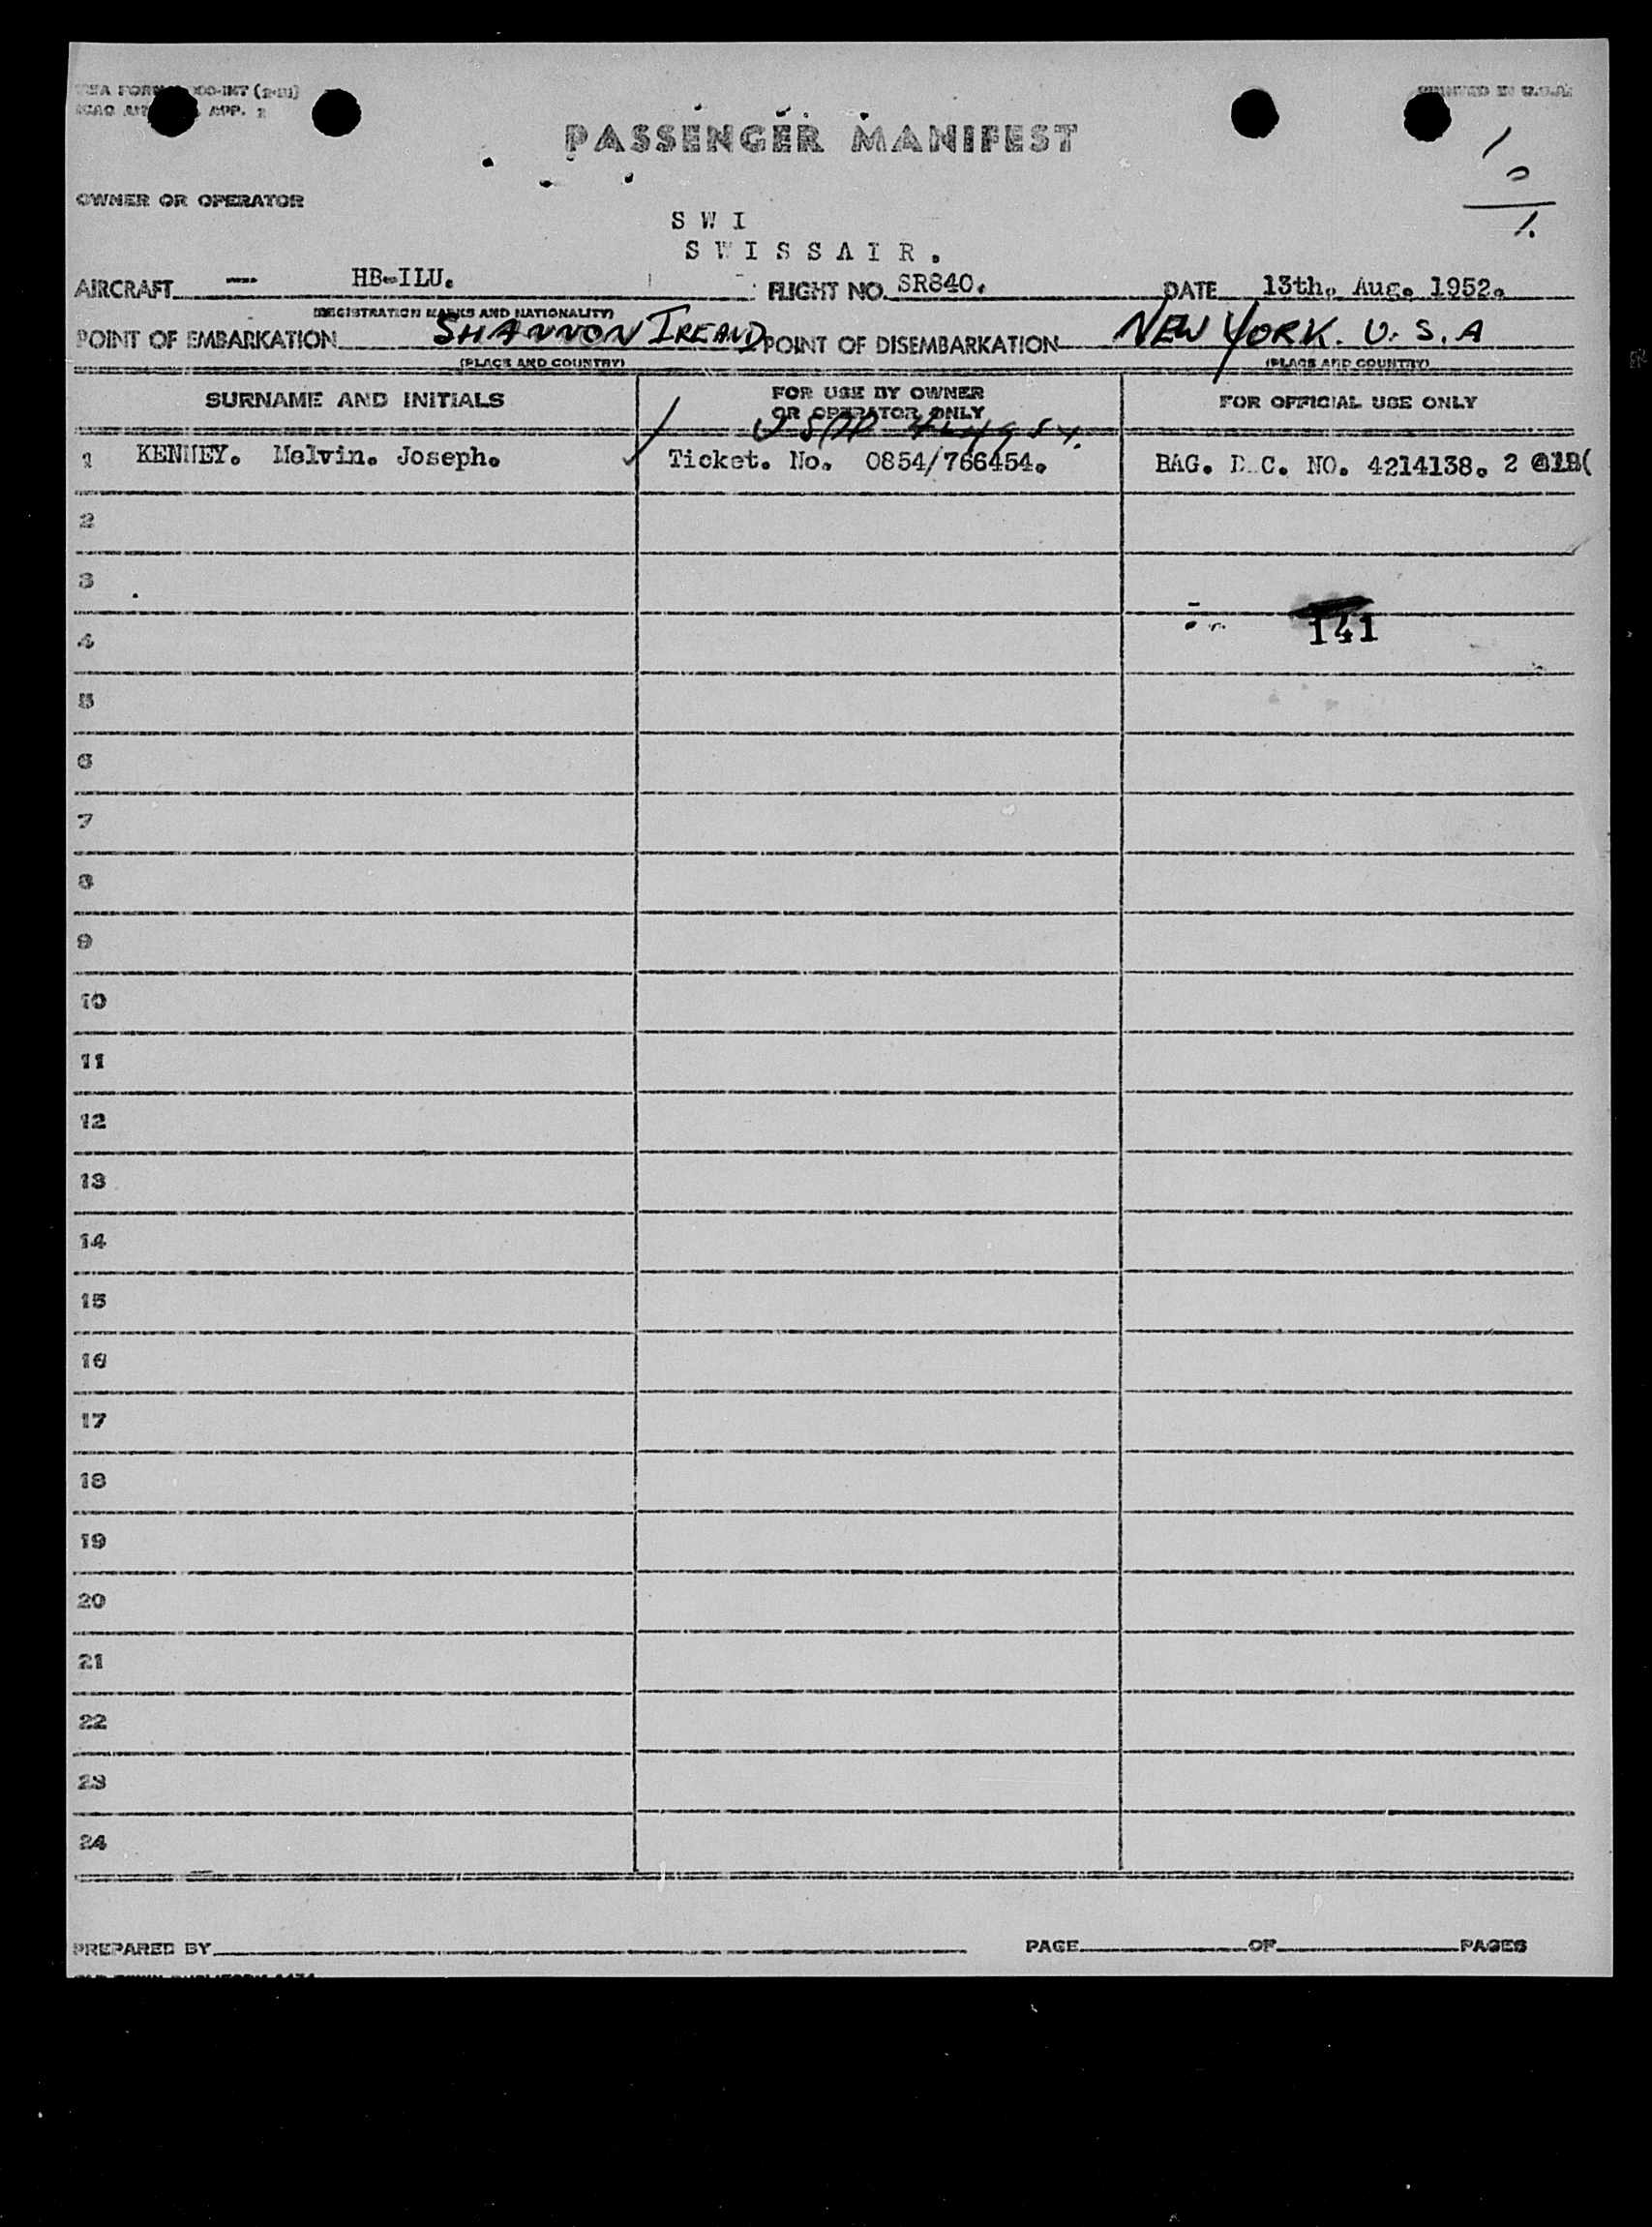 PRINTED IN U.S.A.
APP. 2
PASSENGER MANIFEST
1 0
1.
OWNER OR OPERATOR
S W I
S W I S S A I R .
AIRCRAFT — HB-ILU. FLIGHT NO. SR840. DATE 13th. Aug. 1952.
(REGISTRATION MARKS AND NATIONALITY)
POINT OF EMBARKATION SHANNON IREAND POINT OF DISEMBARKATION NEW YORK. U.S.A
(PLACE AND COUNTRY) (PLACE AND COUNTRY)
SURNAME AND INITIALS FOR USE BY OWNER OR OPERATOR ONLY FOR OFFICIAL USE ONLY
1 KENNEY. Melvin. Joseph. Ticket. No. 0854/766454. BAG. D.C. NO. 4214138. 2
2
3
4 141
5
6
7
8
9
10
11
12
13
14
15
16
17
18
19
20
21
22
23
24
PREPARED BY PAGE OF PAGES